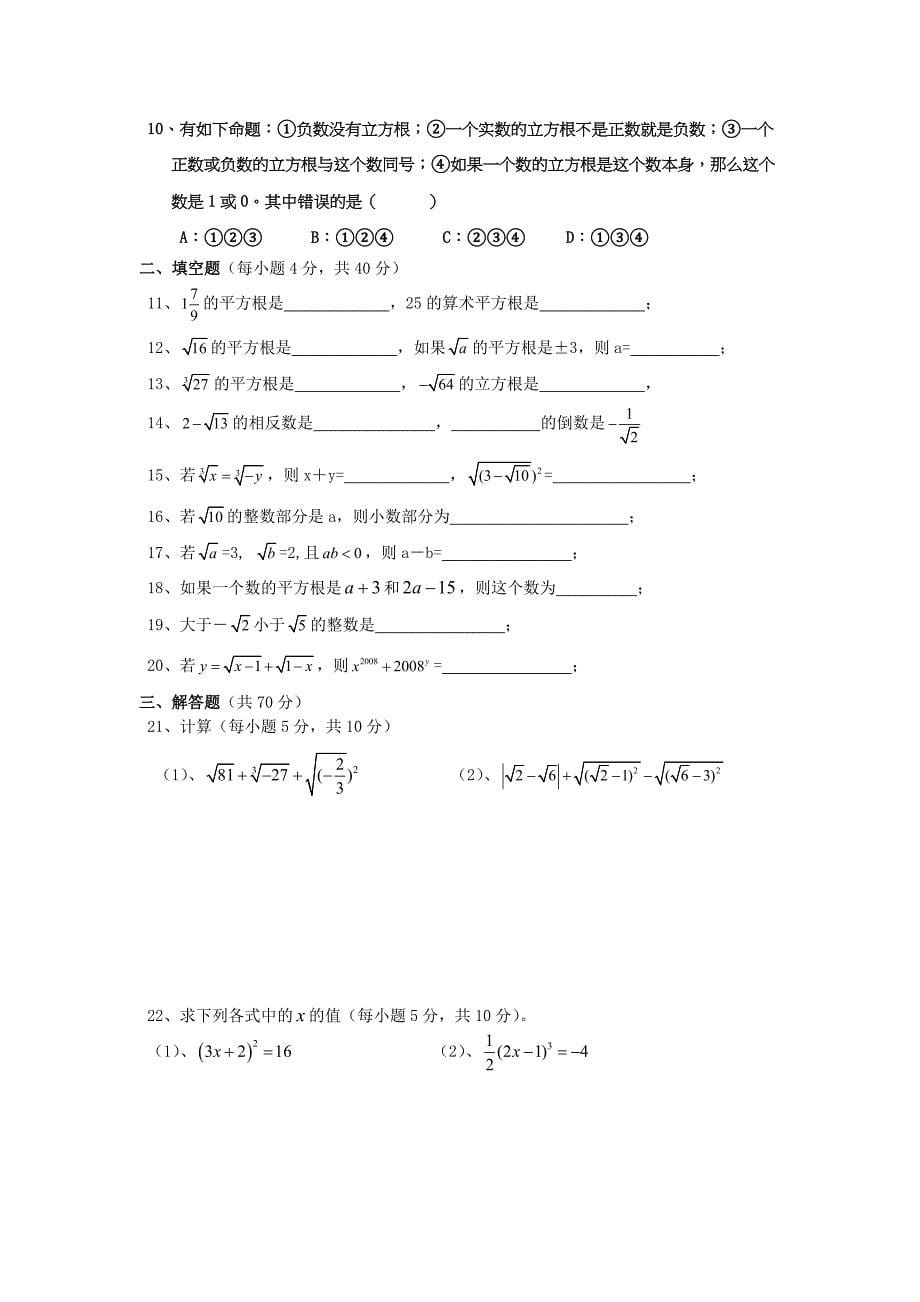 10、有如下命题：①负数没有立方根；②一个实数的立方根不是正数就是负数；③一个
正数或负数的立方根与这个数同号；④如果一个数的立方根是这个数本身，那么这个
数是 1 或 0。其中错误的是（      ）
A：①②③ B：①②④ C：②③④ D：①③④
二、填空题（每小题 4 分，共 40 分）
11、$1\frac{7}{9}$ 的平方根是_____________，25 的算术平方根是_____________；
12、$\sqrt{16}$ 的平方根是_____________，如果 $\sqrt{a}$ 的平方根是±3，则 a=___________；
13、$\sqrt[3]{27}$ 的平方根是_____________，$-\sqrt{64}$ 的立方根是_____________，
14、$2-\sqrt{13}$ 的相反数是_______________，___________的倒数是 $-\frac{1}{\sqrt{2}}$
15、若 $\sqrt[3]{x}=\sqrt[3]{-y}$，则 x＋y=_____________，$\sqrt{(3-\sqrt{10})^2}$=_________________；
16、若 $\sqrt{10}$ 的整数部分是 a，则小数部分为______________________；
17、若 $\sqrt{a}$=3, $\sqrt{b}$=2,且 $ab<0$，则 a－b=________________；
18、如果一个数的平方根是 $a+3$ 和 $2a-15$，则这个数为__________；
19、大于－$\sqrt{2}$ 小于 $\sqrt{5}$ 的整数是________________；
20、若 $y=\sqrt{x-1}+\sqrt{1-x}$，则 $x^{2008}+2008^y$=________________；
三、解答题（共 70 分）
21、计算（每小题 5 分，共 10 分）
（1）、$\sqrt{81}+\sqrt[3]{-27}+\sqrt{(-\frac{2}{3})^2}$ （2）、$|\sqrt{2}-\sqrt{6}|+\sqrt{(\sqrt{2}-1)^2}-\sqrt{(\sqrt{6}-3)^2}$
22、求下列各式中的 $x$ 的值（每小题 5 分，共 10 分）。
（1）、$(3x+2)^2=16$ （2）、$\frac{1}{2}(2x-1)^3=-4$